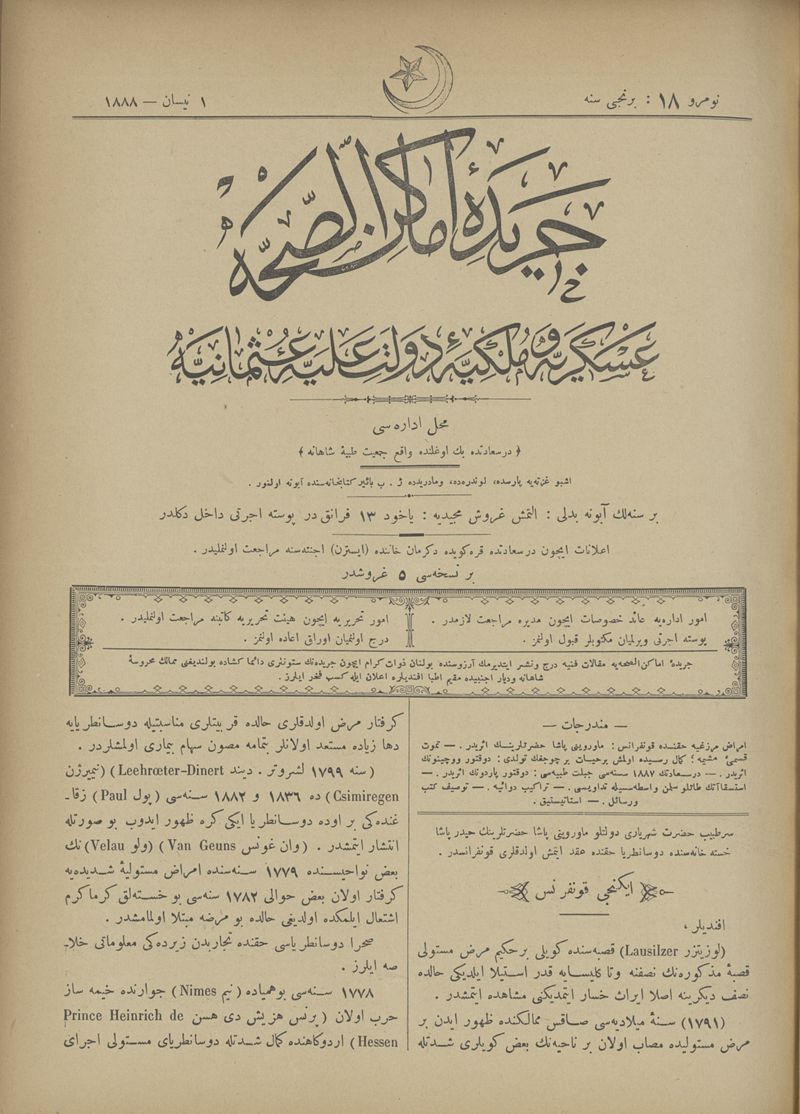 نومرو ١٨ : برنجی سنه
١ نیسان — ١٨٨٨
جریدهٔ اماکن الصحّه
عسکریه و ملکیهٔ دولت علیهٔ عثمانیه
محل اداره‌سی
﴿ درسعادتده بك اوغلنده واقع جمعیت طبیهٔ شاهانه ﴾
اشبو غزته‌یه پارسده، لوندره‌ده، ومادریدده ژ . ب بائیر کتابخانه‌سنده آبونه اولنور .
بر سنه‌لك آبونه بدلی : التمش غروش مجیدیه : یاخود ١٣ فرانق در پوسته اجرتی داخل دکلدر
اعلانات ایچون درسعادتده قره‌کویده دکرمان خاننده (ایسترن) اجنته‌سنه مراجعت اولنملیدر .
بر نسخه‌سی ٥ غروشدر
امور اداره‌یه عائد خصوصات ایچون مدیره مراجعت لازمدر .
پوسته اجرتی ویرلمیان مکتوبلر قبول اولنمز .
امور تحریریه ایچون هیئت تحریریه کاتبنه مراجعت اولنملیدر .
درج اولنمیان اوراق اعاده اولنمز .
جریدهٔ اماکن‌الصحه‌یه مقالات فنیه درج ونشر ایتدیرمك آرزوسنده بولنان ذوات کرام ایچون جریده‌نك ستونلری دائما کشاده بولندیغنی ممالك محروسهٔ
شاهانه ودیار اجنبیده مقیم اطبا افندیلره اعلان ایله کسب فخر ایلرز .
— مندرجات —
امراض مرزغیه حقنده قونفرانس : ماورویتی پاشا حضرتلرینك اثریدر . — تموت
قسمئ مشیمه ؛ کمال رسیده اولمش برحیسات برچوجغك تولدی : دوقتور ووچینونك
اثریدر . — درسعادتك ١٨٨٧ سنه‌سی جبلت طبیه‌سی : دوقتور پاردونك اثریدر . —
استسقاآتك طاتلو سلمن واسطه‌سیله تداویسی . — تراکیب دوائیه . — توصیف کتب
ورسائل . — استاتیستیق .
سرطبیب حضرت شهریاری دولتلو ماورویتی پاشا حضرتلرینك حیدر پاشا
خسته خانه‌سنده دوسانطریا حقنده عقد ایتمش اولدقلری قونفرانسدر .
ایکنجی قونفرنس
افندیلر ،
(لوزیتزر Lausilzer) قصبه‌سنده کویلی برحکیم مرض مستولی
قصبهٔ مذکوره‌نك نصفنه وتا کلیسایه قدر استیلا ایلدیکی حالده
نصف دیکرینه اصلا ایراث خسار ایتمدیکنی مشاهده ایتمشدر .
(١٧٩١) سنهٔ میلادیه‌سی صاقس ممالکنده ظهور ایدن بر
مرض مستولیده مصاب اولان بر ناحیه‌نك بعض کویلری شدتله
کرفتار مرض اولدقلری حالده قربیتلری مناسبتیله دوسانطریایه
دها زیاده مستعد اولانلر بتمامه مصون سهام بیماری اولمشلردر .
(سنه ١٧٩٩ لشروتر . دینرد Leehrœter-Dinert) (تیمیرژن
Csimiregen) ده ١٨٣٦ و ١٨٨٢ سنه‌سی (پول Paul) زقا-
غنده‌کی بر اوده دوسانطریا ایکی کره ظهور ایدوب بو صورتله
انتشار ایتمشدر . (وان غونس Van Geuns) (ولو Velau) نك
بعض نواحیسنده ١٧٧٩ سنه‌سنده امراض مستولیهٔ شدیده‌یه
کرفتار اولان بعض حوالی ١٧٨٢ سنه‌سی بو خسته‌لق کرماکرم
اشتعال ایلمکده اولدیغی حالده بو مرضه مبتلا اولمامشدر .
صحرا دوسانطریاسی حقنده تجاربدن زیرده‌کی معلوماتی خلا-
صه ایلرز .
١٧٧٨ سنه‌سی بوهمیاده (نیم Nimes) جوارنده خیمه ساز
حرب اولان (پرنس هنریش دی هسن Prince Heinrich de
Hessen) اردوکاهنده کمال شدتله دوسانطریای مستولی اجرای